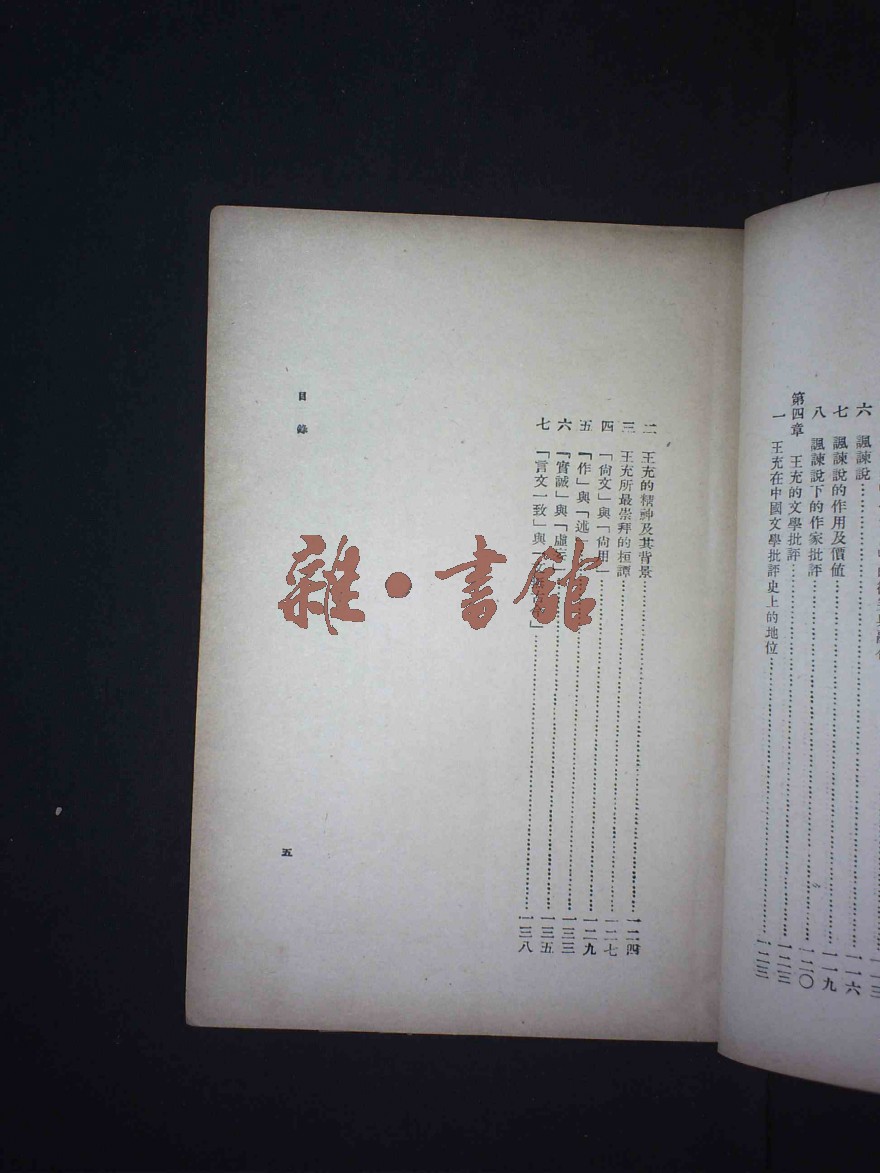 六　諷諫說……一一三
七　諷諫說的作用及價値……一一六
八　諷諫說下的作家批評……一一九
第四章　王充的文學批評……一二〇
一　王充在中國文學批評史上的地位……一二三
二　王充的精神及其背景……一二四
三　王充所最崇拜的桓譚……一二七
四　「尙文」與「尙用」……一二九
五　「作」與「述」……一三三
六　「實誠」與「虛……一三五
七　「言文一致」與「……」……一三八
目錄
五
雜·書館